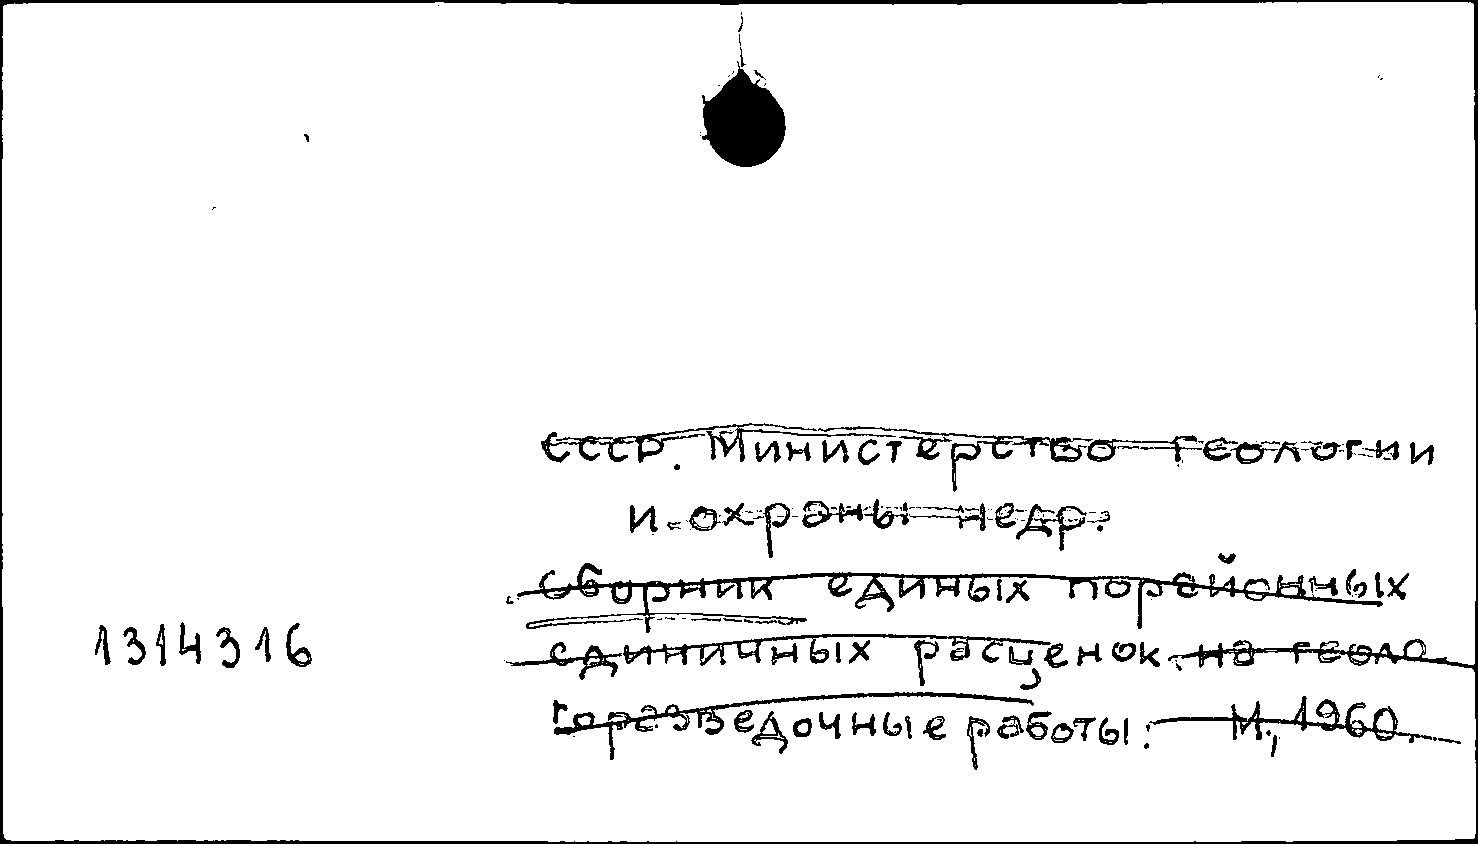 СССР. Министерство геологии
и охраны недр.
Сборник единых порайонных
1314316 единичных расценок на геоло-
горазведочные работы. М., 1960.